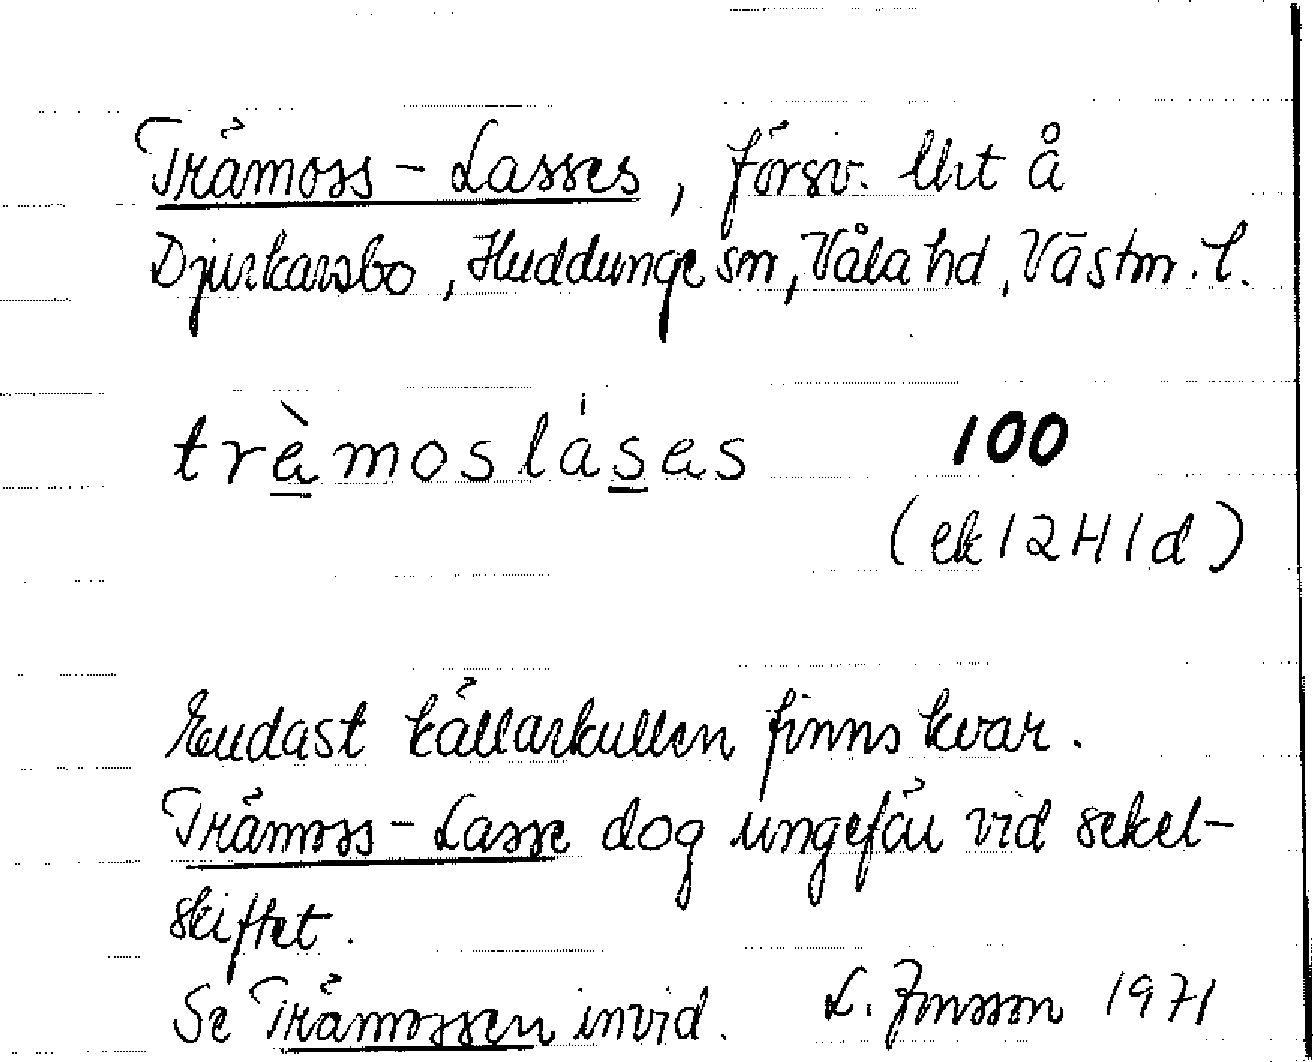 Trämoss-Lasses, försv. lht å
Djurkarsbo, Huddunge sn, Våla hd, Västm. l.
trèmoslásas 100
(ek 12H1d)
Endast källarkullen finns kvar.
Trämoss-Lasse dog ungefär vid sekel-
skiftet.
Se Trämossen invid. L. Jonsson 1971